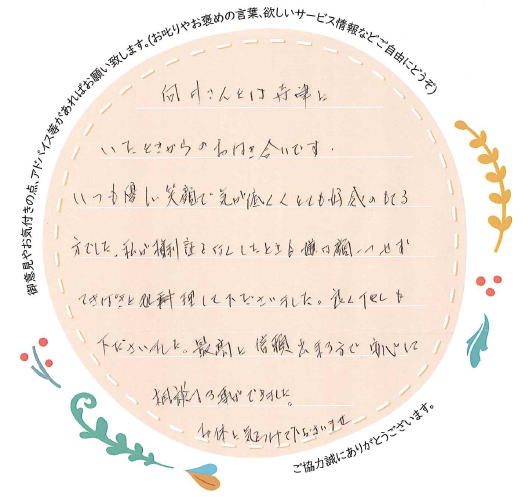 御意見やお気付きの点、アドバイス等があればお願い致します。(お叱りやお褒めの言葉、欲しいサービス情報などご自由にどうぞ)
さんとは
いたときからのお付き合いです。
いつも優しい笑顔で気が低くとても好感のもてる
方でした。私が権利証を したときも嫌な顔一つせず
てきぱきと処理して下さいました。良くして
下さいました。最高に信頼出来る方で安心して
相談する事ができました。
お体を気をつけて下さいませ
ご協力誠にありがとうございます。